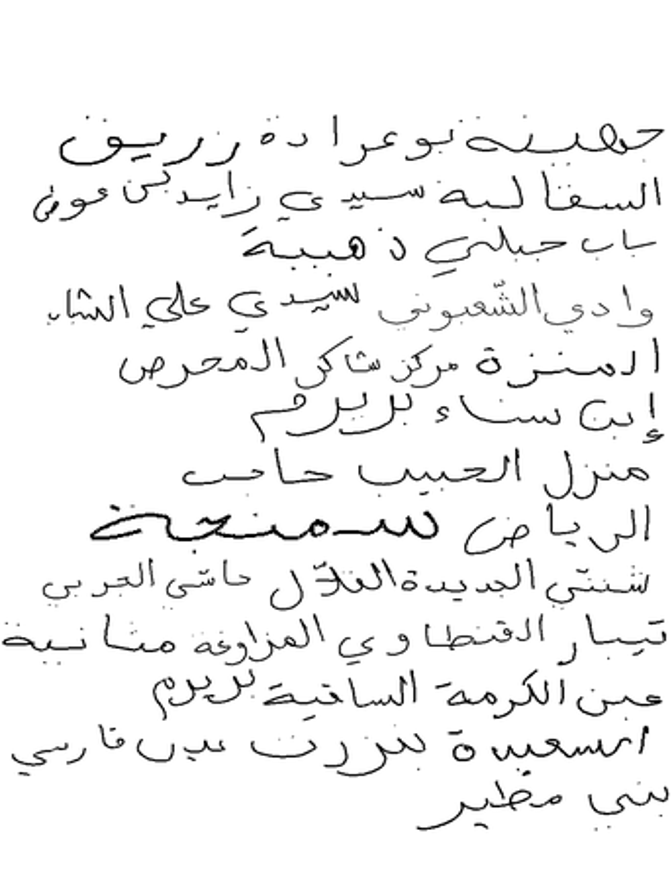 جهينة بوعرادة زريق
السقالبة سيدي زايد بن عون
باب جبلي ذهيبة
وادي الشّعبوني سيدي علي الشباب
المنزة مركز شاكر المحرص
إبن سناء بريرم
منزل الحبيب حاجب
الرياض سمنجة
شنني الجديدة الفلاّل حاشي الجربي
تيبار القنطاوي المزاوغة مثانية
عين الكرمة الساقية بريرم
السعيدة بنزرت عين فارسي
بني مطير